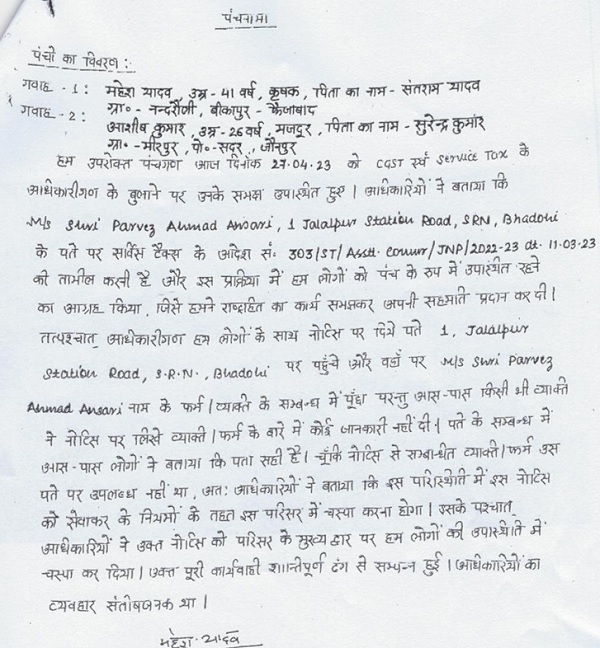 पंचनामा
पंचों का विवरण :-
गवाह - 1 : महेश यादव, उम्र - 41 वर्ष, कृषक, पिता का नाम - संतराम यादव
ग्रा०- नन्दरौली, बीकापुर - फैजाबाद
गवाह - 2 : आशीष कुमार, उम्र - 26 वर्ष, मजदूर, पिता का नाम - सुरेन्द्र कुमार
ग्रा० - मीरपुर, पो० - सदर, जौनपुर
हम उपरोक्त पंचगण आज दिनांक 27.04.23 को CGST एवं Service Tax के
अधिकारीगण के बुलाने पर उनके समक्ष उपस्थित हुए। अधिकारियों ने बताया कि
M/s Shri Parvez Ahmad Ansari, 1 Jalalpur Station Road, SRN, Bhadohi
के पते पर सर्विस टैक्स के आदेश सं: 303/ST/Asstt. Commr/JNP/2022-23 dt. 11.03.23
की तामील करनी है और इस प्रक्रिया में हम लोगों को पंच के रूप में उपस्थित रहने
का आग्रह किया, जिसे हमने राष्ट्रहित का कार्य समझकर अपनी सहमति प्रदान कर दी।
तत्पश्चात् अधिकारीगण हम लोगों के साथ नोटिस पर दिये पते 1, Jalalpur
Station Road, S.R.N., Bhadohi पर पहुँचे और वहाँ पर M/s Shri Parvez
Ahmad Ansari नाम के फर्म/व्यक्ति के सम्बन्ध में पूँछा परन्तु आस-पास किसी भी व्यक्ति
ने नोटिस पर लिखे व्यक्ति/फर्म के बारे में कोई जानकारी नहीं दी। पते के सम्बन्ध में
आस-पास लोगों ने बताया कि पता सही है। चूँकि नोटिस से सम्बन्धित व्यक्ति/फर्म उस
पते पर उपलब्ध नहीं था, अतः अधिकारियों ने बताया कि इस परिस्थिति में इस नोटिस
को सेवाकर के नियमों के तहत इस परिसर में चस्पा करना होगा। इसके पश्चात्
अधिकारियों ने उक्त नोटिस को परिसर के मुख्य द्वार पर हम लोगों की उपस्थिति में
चस्पा कर दिया। उक्त पूरी कार्यवाही शान्तिपूर्ण ढंग से सम्पन्न हुई। अधिकारियों का
व्यवहार संतोषजनक था।
महेश यादव